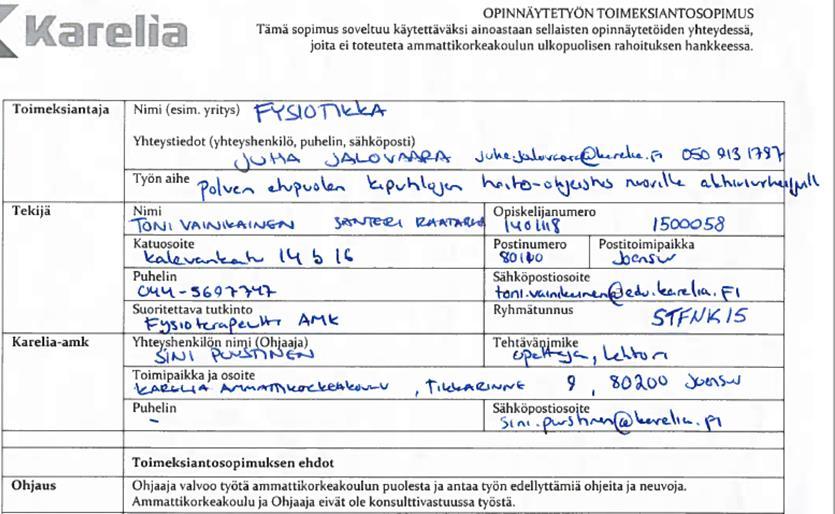 Karelia
OPINNÄYTETYÖN TOIMEKSIANTOSOPIMUS
Tämä sopimus soveltuu käytettäväksi ainoastaan sellaisten opinnäytetöiden yhteydessä,
joita ei toteuteta ammattikorkeakoulun ulkopuolisen rahoituksen hankkeessa.
Toimeksiantaja
Nimi (esim. yritys) FYSIOTIKKA
Yhteystiedot (yhteyshenkilö, puhelin, sähköposti)
JUHA JALOVAARA juha.jalovaara@karelia.fi 050 913 1797
Työn aihe polven etupuolen kiputilojen hoito-ohjeistus nuorille
Tekijä
Nimi
TONI VAINIKAINEN SANTERI
Opiskelijanumero
1401118 1500058
Katuosoite
Kalevankatu 14 b 16
Postinumero
80100
Postitoimipaikka
Joensuu
Puhelin
044-5697747
Sähköpostiosoite
toni.vainikainen@edu.karelia.FI
Suoritettava tutkinto
Fysioterapeutti AMK
Ryhmätunnus
STFNK15
Karelia-amk
Yhteyshenkilön nimi (Ohjaaja)
SINI PURSTINEN
Tehtävänimike
opettaja, lehtori
Toimipaikka ja osoite
KARELIA AMMATTIKORKEAKOULU, TIKKARINNE 9, 80200 Joensuu
Puhelin
-
Sähköpostiosoite
sini.purstinen@karelia.fi
Toimeksiantosopimuksen ehdot
Ohjaus
Ohjaaja valvoo työtä ammattikorkeakoulun puolesta ja antaa työn edellyttämiä ohjeita ja neuvoja.
Ammattikorkeakoulu ja Ohjaaja eivät ole konsulttivastuussa työstä.